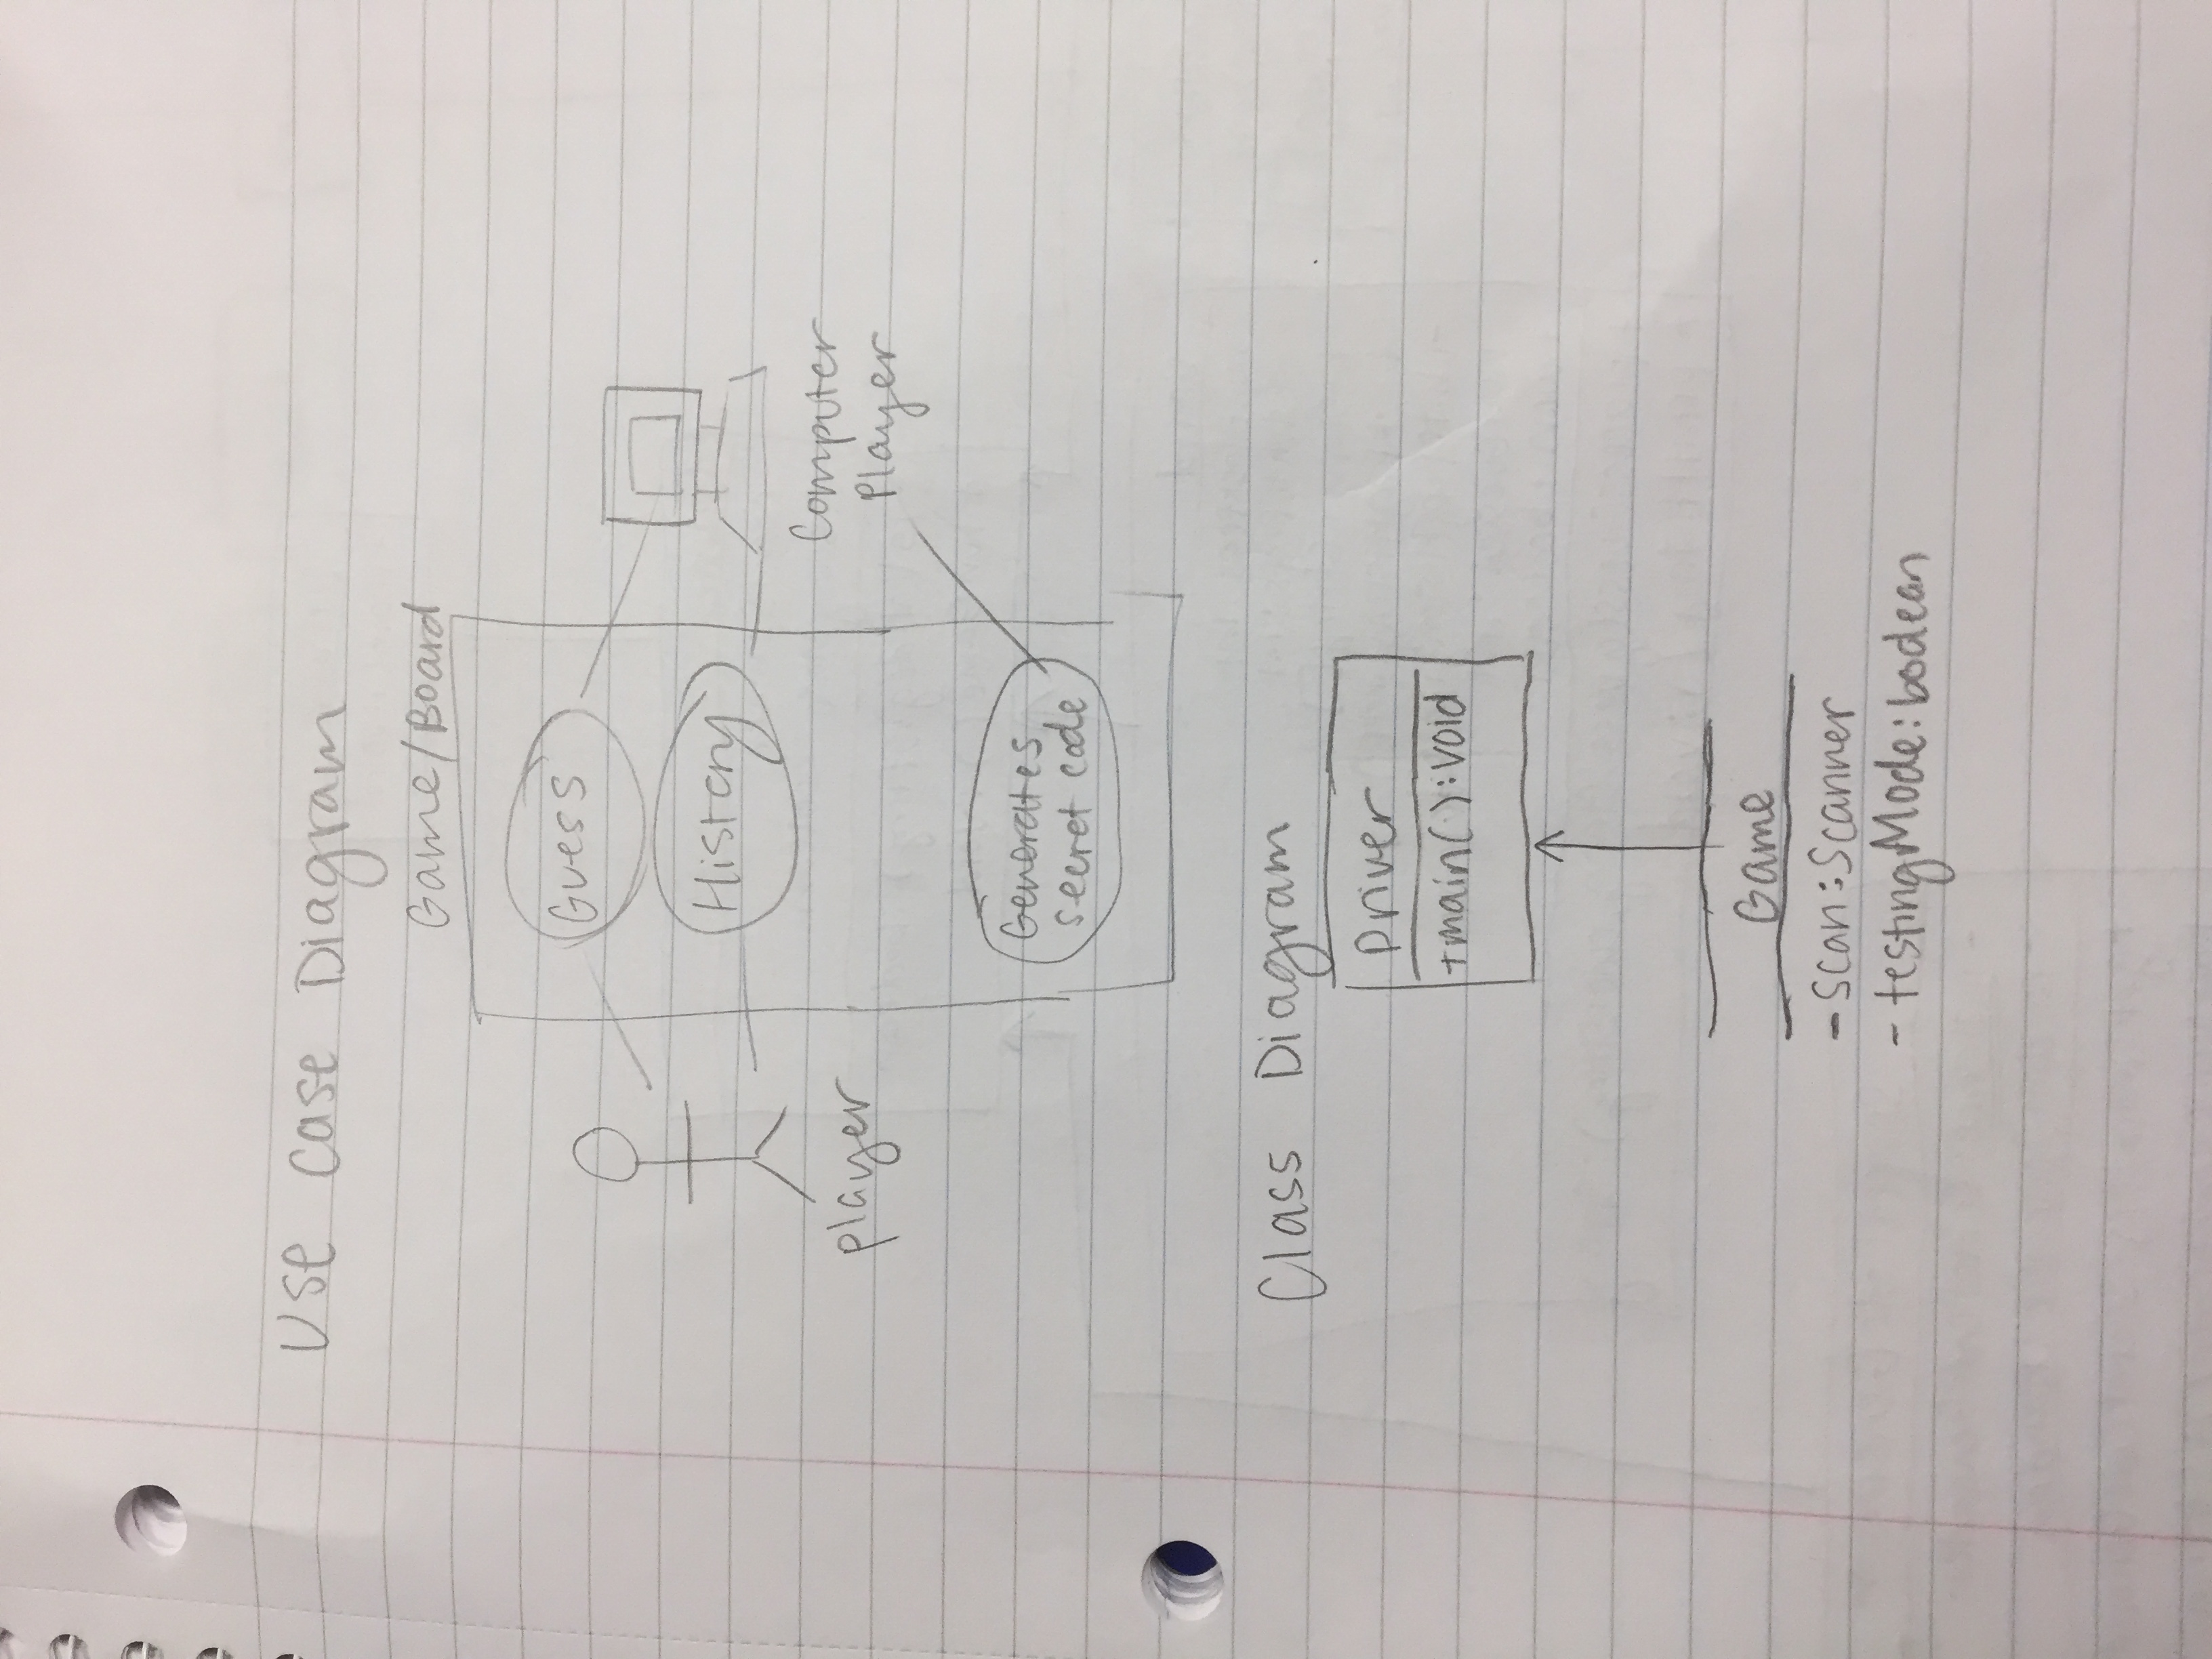 Use Case Diagram
Game/Board
Guess
History
player
Computer
Player
Generates
secret code
Class Diagram
Driver
+main():void
Game
-scan:Scanner
-testingMode:boolean